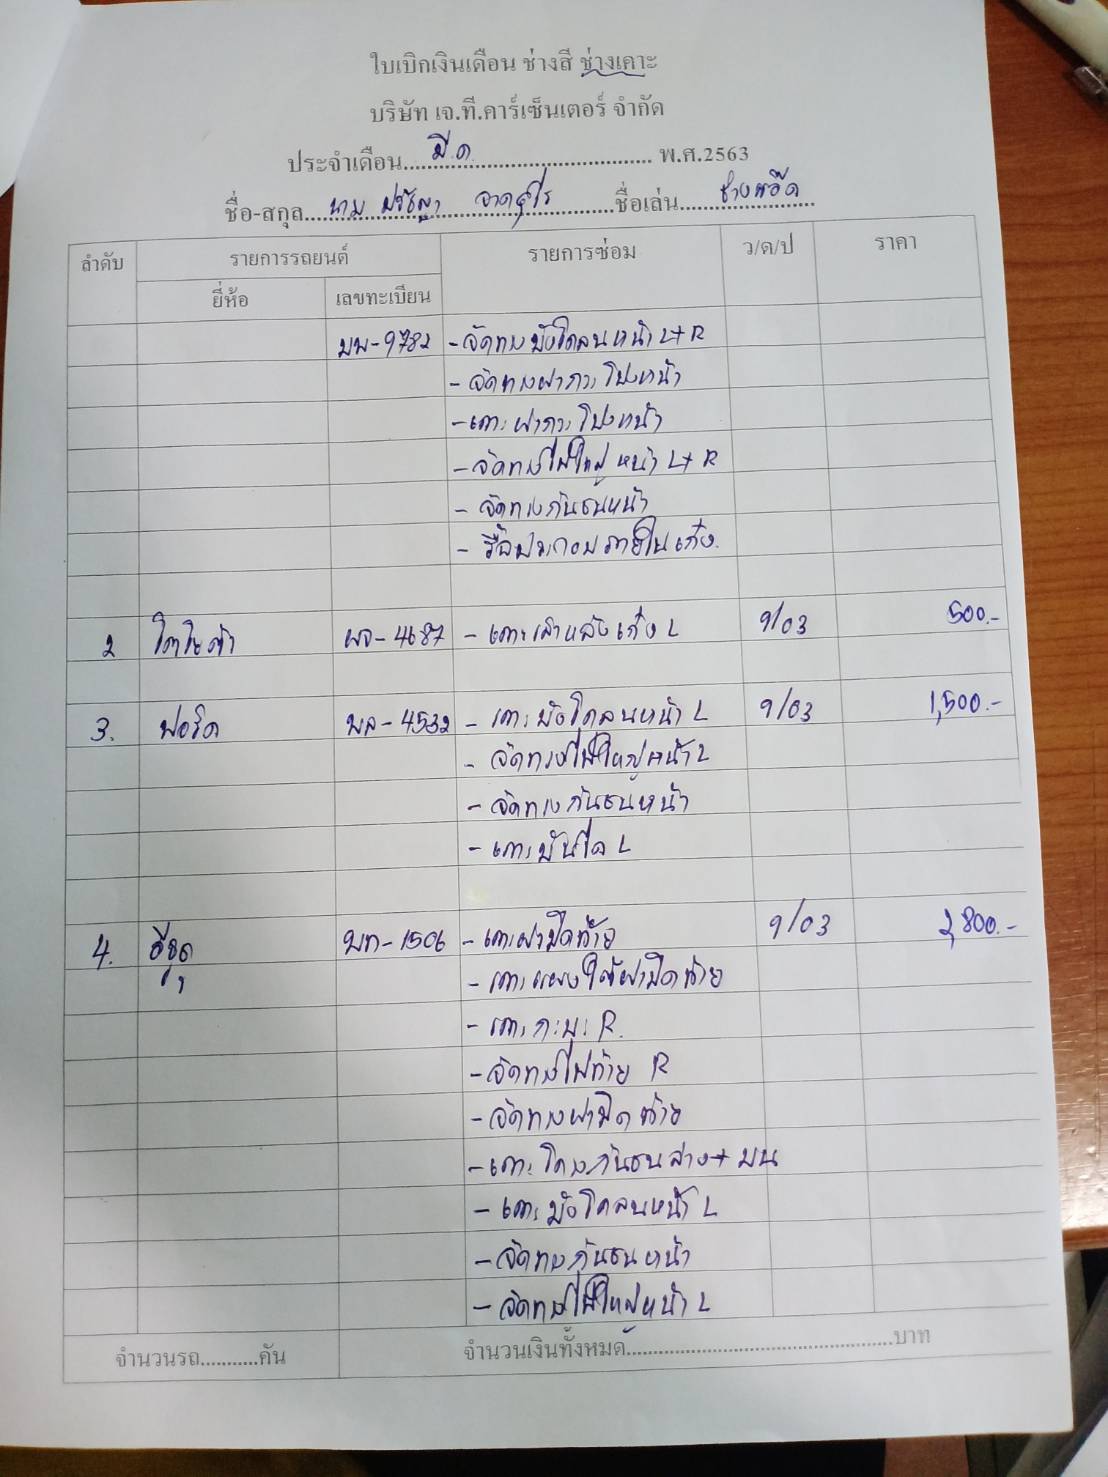 ใบเบิกเงินเดือน ช่างสี ช่างเคาะ
บริษัท เจ.ที.คาร์เซ็นเตอร์ จำกัด
ประจำเดือน....มี.ค.............................. พ.ศ.2563
ชื่อ-สกุล... นาย ปรัชญา ............ชื่อเล่น...... ช่างหลอด
ลำดับ รายการรถยนต์ รายการซ่อม ว/ด/ป ราคา
ยี่ห้อ เลขทะเบียน
บพ-9782 - จัดทรงบังโคลนหน้า L+R
- จัดทรงฝากระโปรงหน้า
- เคาะฝากระโปรงหน้า
- จัดทรงไฟใหญ่หน้า L+R
- จัดทรงกันชนหน้า
- รื้อประกอบภายในเก๋ง
2 โตโยต้า ผจ-4687 - เคาะเสาหลังเก๋ง L 9/03 500.-
3. ฟอร์ด บล-4532 - เคาะบังโคลนหน้า L 9/03 1,500.-
- จัดทรงไฟใหญ่หน้า L
- จัดทรงกันชนหน้า
- เคาะบันได L
4. อีซูซุ บท-1506 - เคาะฝาปิดท้าย 9/03 2,800.-
- เคาะแผงใต้ฝาปิดท้าย
- เคาะกะบะ R.
- จัดทรงไฟท้าย R
- จัดทรงฝาปิดท้าย
- เคาะโครงกันชนล่าง+บน
- เคาะบังโคลนหน้า L
- จัดทรงกันชนหน้า
- จัดทรงไฟใหญ่หน้า L
จำนวนรถ...........คัน จำนวนเงินทั้งหมด..................................................บาท